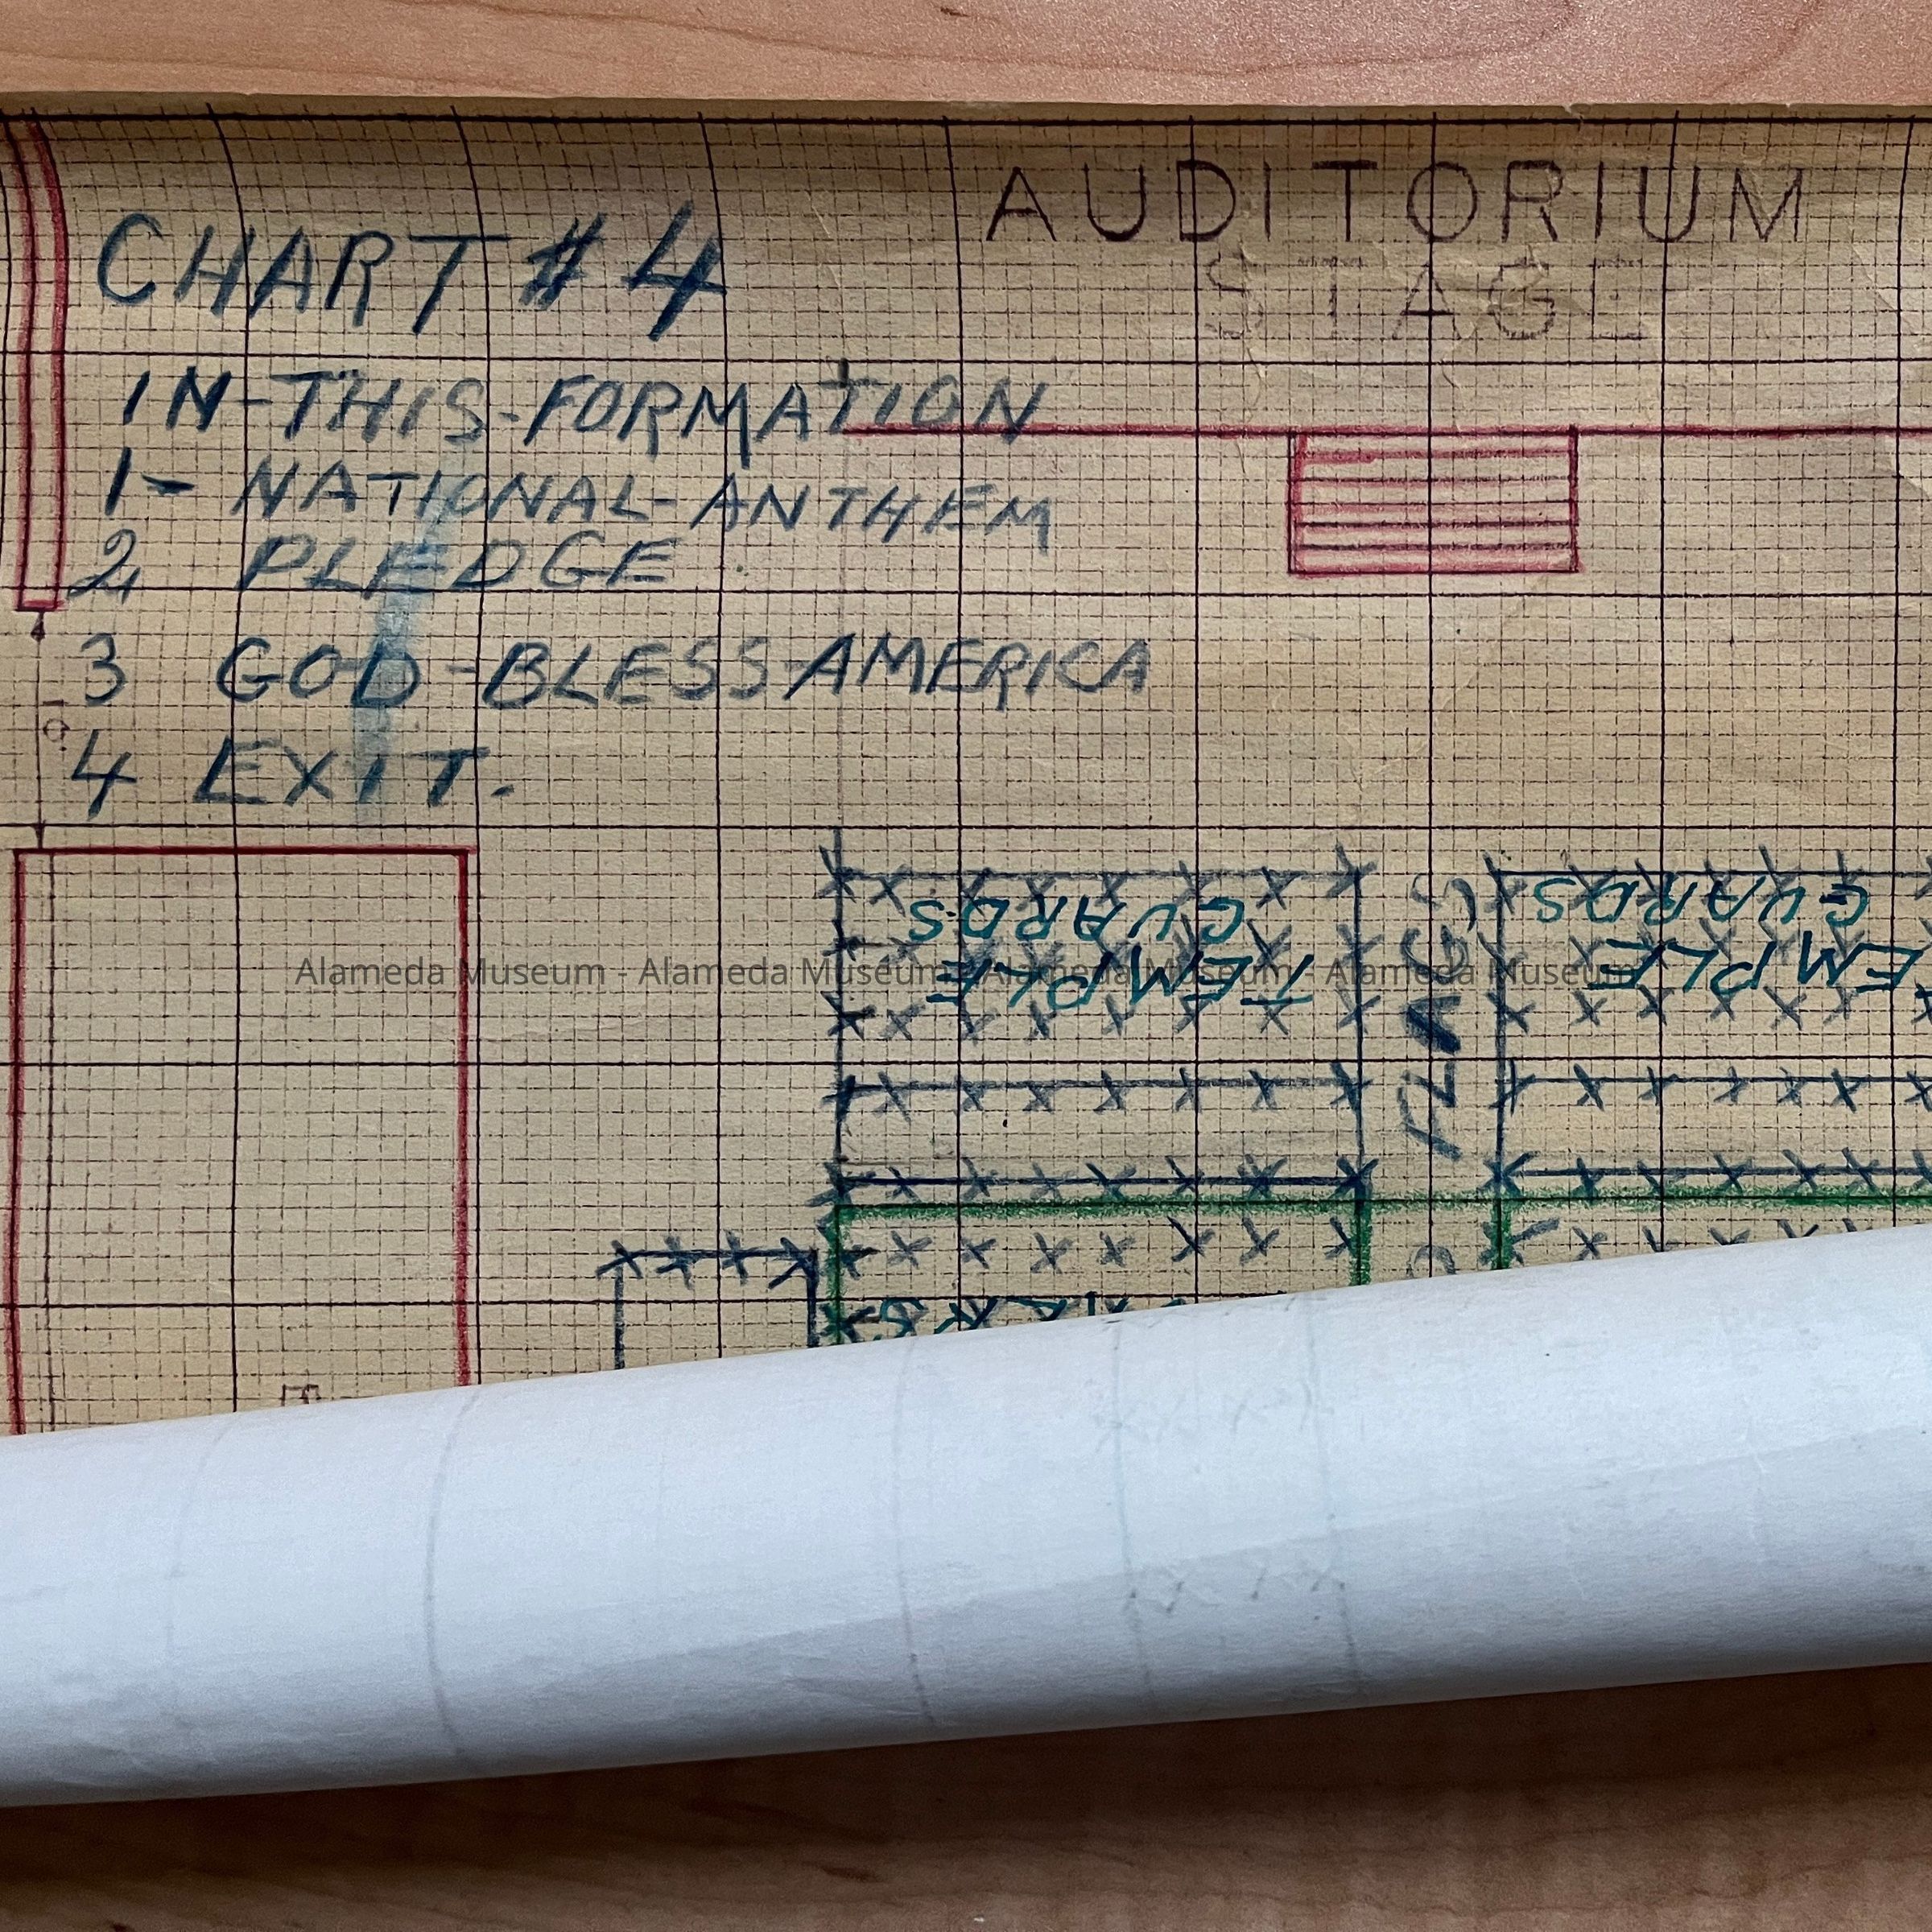 AUDITORIUM
STAGE
CHART # 4
IN-THIS-FORMATION
1- NATIONAL-ANTHEM
2 PLEDGE
3 GOD-BLESS-AMERICA
4 EXIT.
TEMPLE
GUARDS
FLAGS
TEMPLE
GUARDS
Alameda Museum - Alameda Museum - Alameda Museum - Alameda Museum